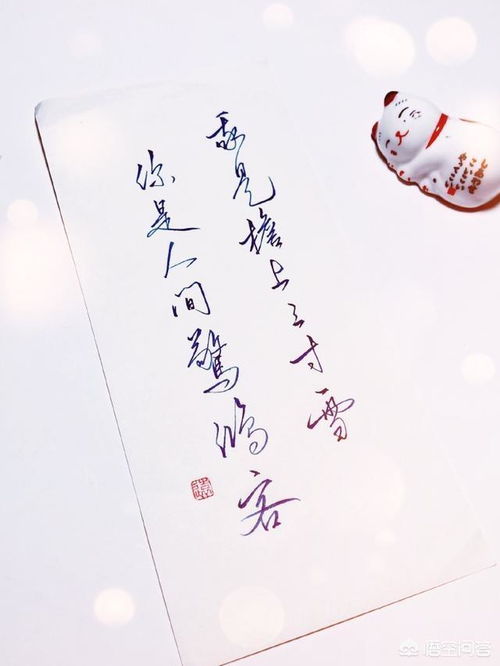 我是檐上三寸雪
你是人间驚鸿客
悟空问答